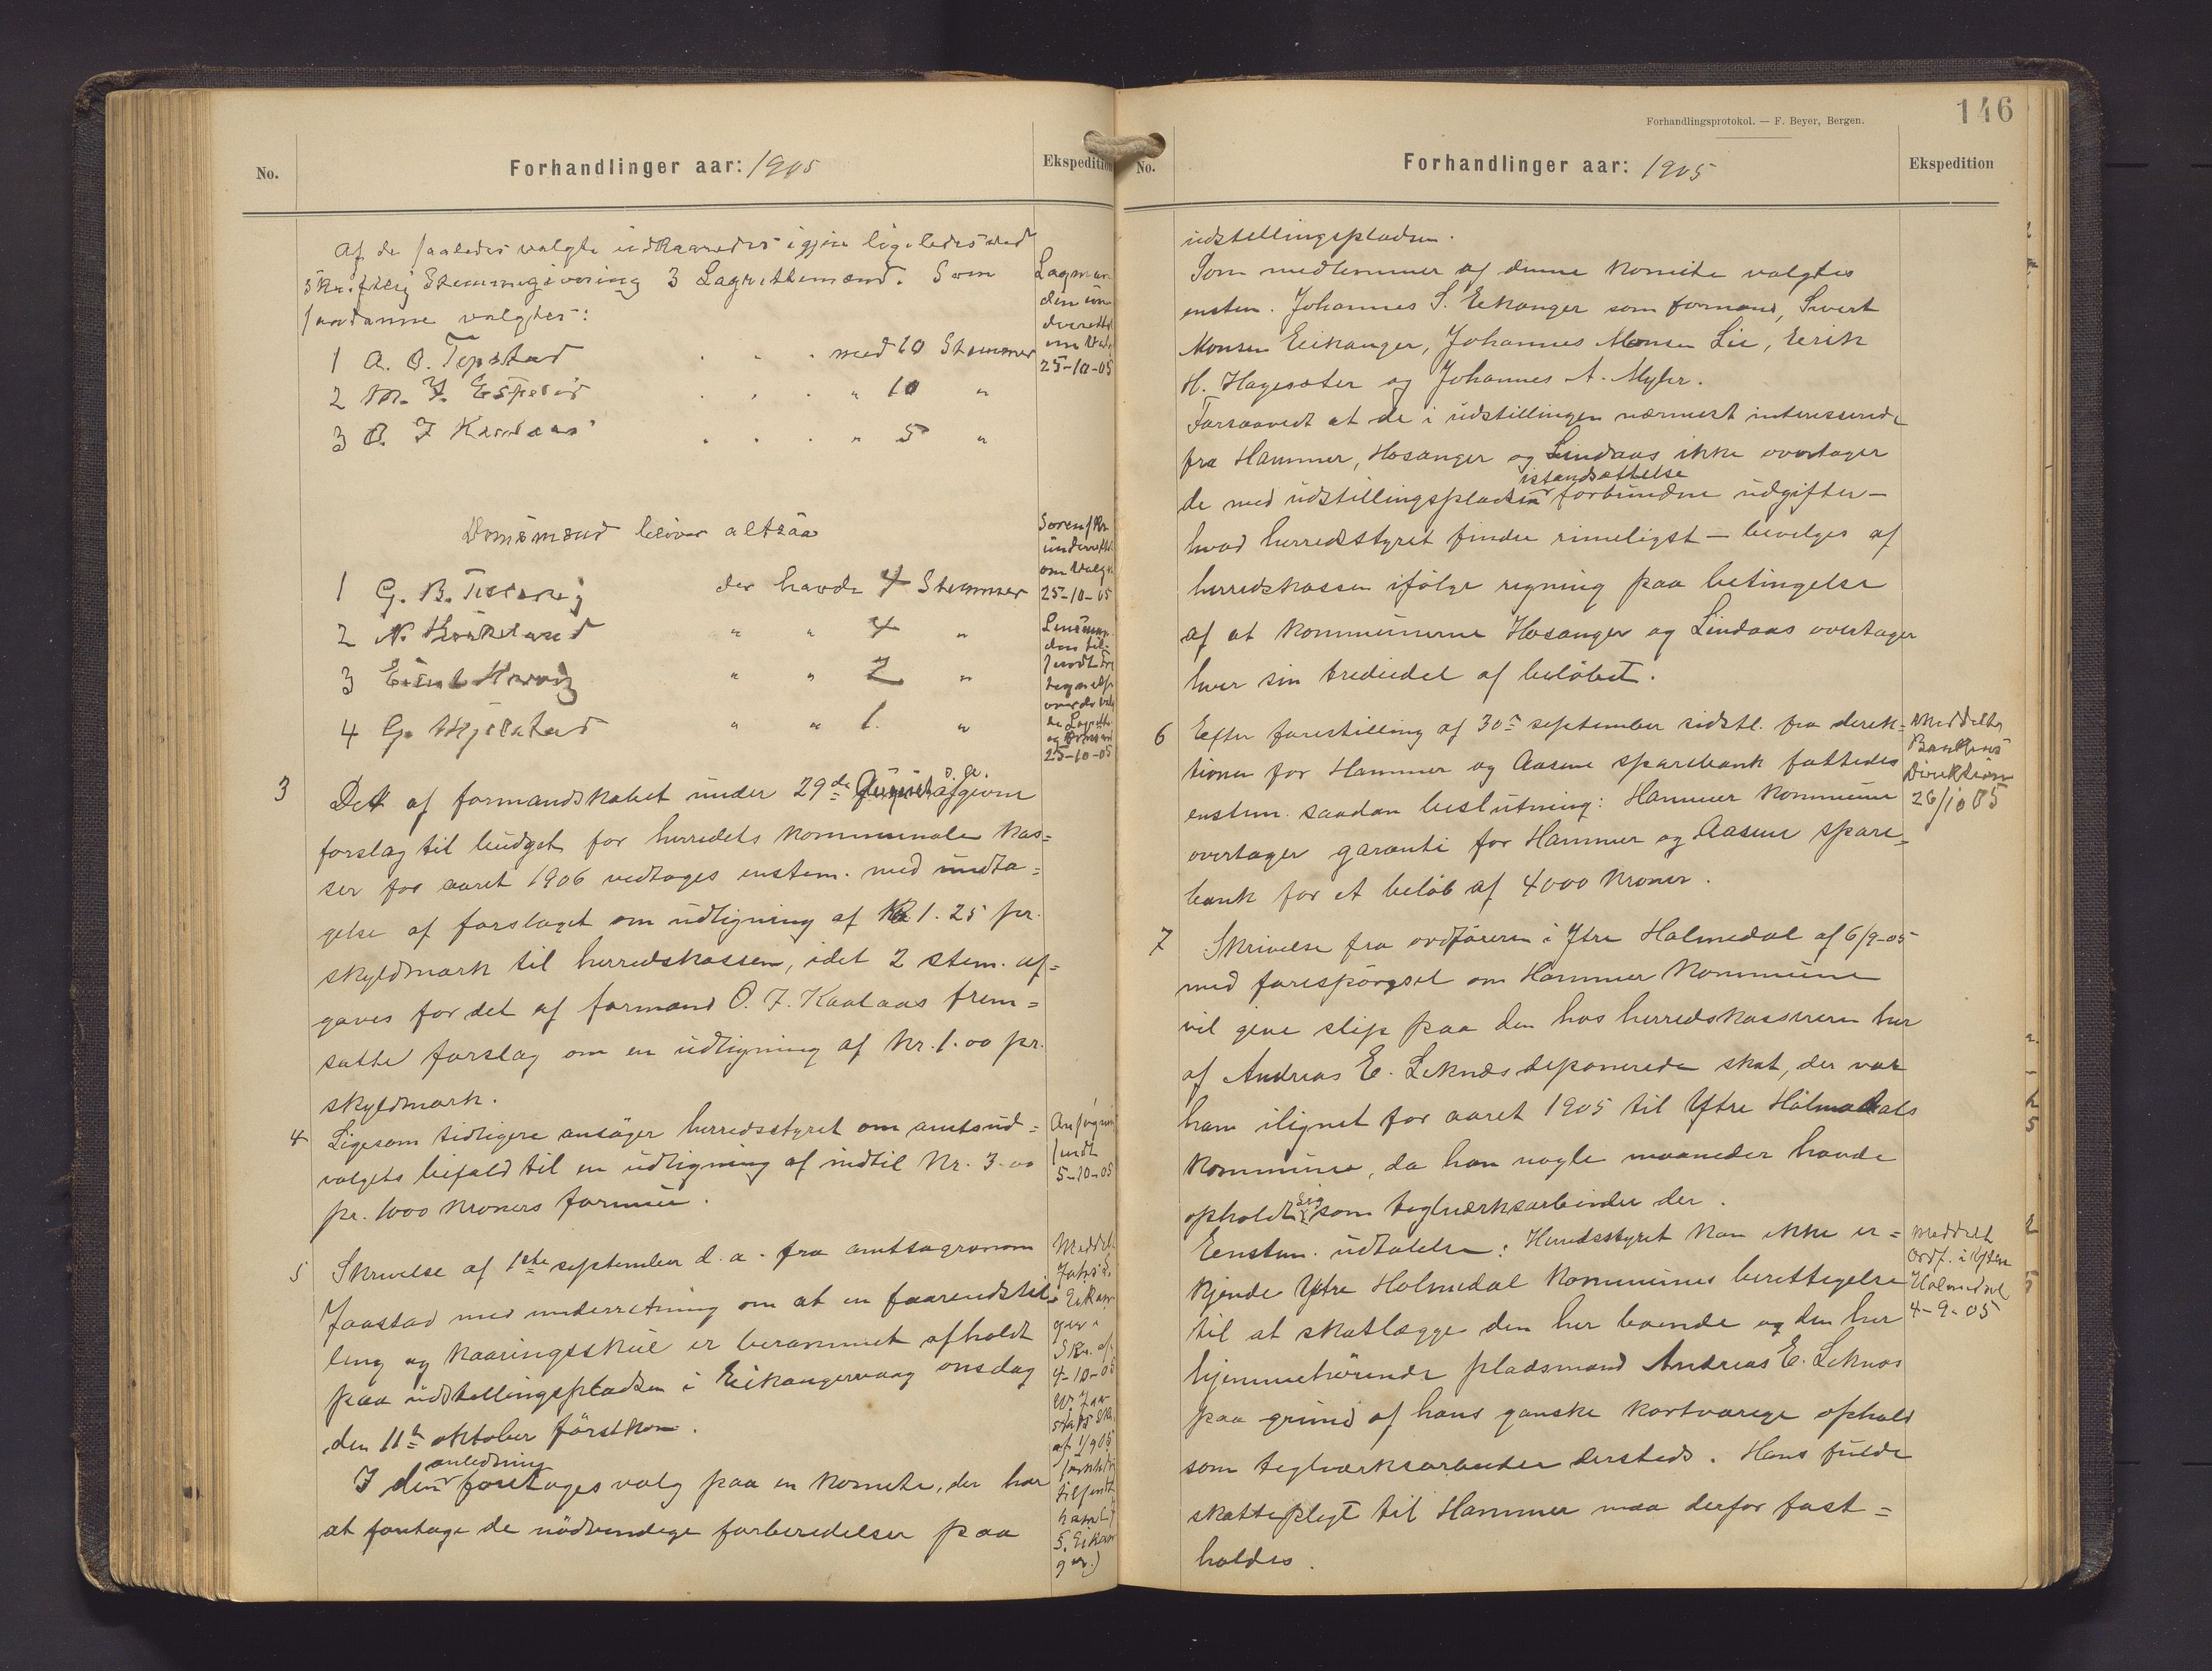 No.
Forhandlinger aar: 1905
Ekspedition
Af de saaledes valgte udkaaredes igjen ligeledes ved
skriftlig Stemmegivning 3 Lagrettemænd. Som
saadanne valgtes:
1 A. O. Tepstad . . . med 10 Stemmer
2 M. J. Espelid . . . " 10 "
3 O. J. Kaalaas . . . " 5 "
25-10-05
Domsmænd bliver altsaa
1 G. B. der havde 4 Stemmer
2 N. " " 4 "
3 " " 2 "
4 G. " " 1. "
om Valg
25-10-05
25-10-05
3 Det af formandskabet under 29de d. a. afgivne
forslag til budget for herredets kommunale kas=
ser for aaret 1906 vedtoges enstem. med undta=
gelse af forslaget om udligning af Kr 1.25 pr.
skyldmark til herredskassen, idet 2 stem. af=
gaves for det af formand O. J. Kaalaas frem=
satte forslag om en udligning af Kr. 1.00 pr.
skyldmark.
4 Ligesom tidligere ansøger herredsstyret om amtsud=
valgets bifald til en udligning af indtil Kr. 3.00
pr. 1000 kroners formue.
sendt
5-10-05
5 Skrivelse af 1ste september d. a. fra amtsagronom
Jaastad med underretning om at en faareudstil=
ling og kaaringsskue er berammet afholdt
paa udstillingspladsen i Eikangervaag onsdag
den 11te oktober førstkom.
I den anledning foretages valg paa en komite, der har
at foretage de nødvendige forberedelser paa
Skr. af
4-10-05
af 1/9 05
S. Eikan
ger.)
Forhandlingsprotokol. — F. Beyer, Bergen.
146
No.
Forhandlinger aar: 1905
Ekspedition
udstillingspladsen.
Som medlemmer af denne komite valgtes
enstem. Johannes S. Eikanger som formand, Sivert
Monsen Eikanger, Johannes Monsen Lie, Erik
H. Hagesæter og Johannes A. Myhr.
Forsaavidt at de i udstillingen nærmest interesserede
fra Hammer, Hosanger og Lindaas ikke overtager
de med udstillingspladsens istandsættelse forbundne udgifter —
hvad herredsstyret finder rimeligst — bevilges af
herredskassen ifølge regning paa betingelse
af at kommunerne Hosanger og Lindaas overtager
hver sin trediedel af beløbet.
6 Efter forestilling af 30te september sidstl. fra direk=
tionen for Hammer og Aasene sparebank fattedes
enstem. saadan beslutning: Hammer kommune
overtager garanti for Hammer og Aasene spare=
bank for et beløb af 4000 kroner.
Meddelt
Bankens
Direktion
26/10 05
7 Skrivelse fra ordføreren i Ytre Holmedal af 6/9-05
med forespørgsel om Hammer kommune
vil give slip paa den hos herredskassereren her
af Andreas E. Leknes deponerede skat, der var
ham ilignet for aaret 1905 til Ytre Holmedals
kommune, da han nogle maaneder havde
opholdt sig som teglværksarbeider der.
Eenstem. udtalelse: Herredsstyret kan ikke er=
kjende Ytre Holmedal kommunes berettigelse
til at skatlægge den her boende og den her
hjemmehørende pladsmand Andreas E. Leknes
paa grund af hans ganske kortvarige ophold
som teglværksarbeider dersteds. Hans fulde
skattepligt til Hammer maa derfor fast=
holdes.
Meddelt
Ordf. i Ytre
Holmedal
4-9-05